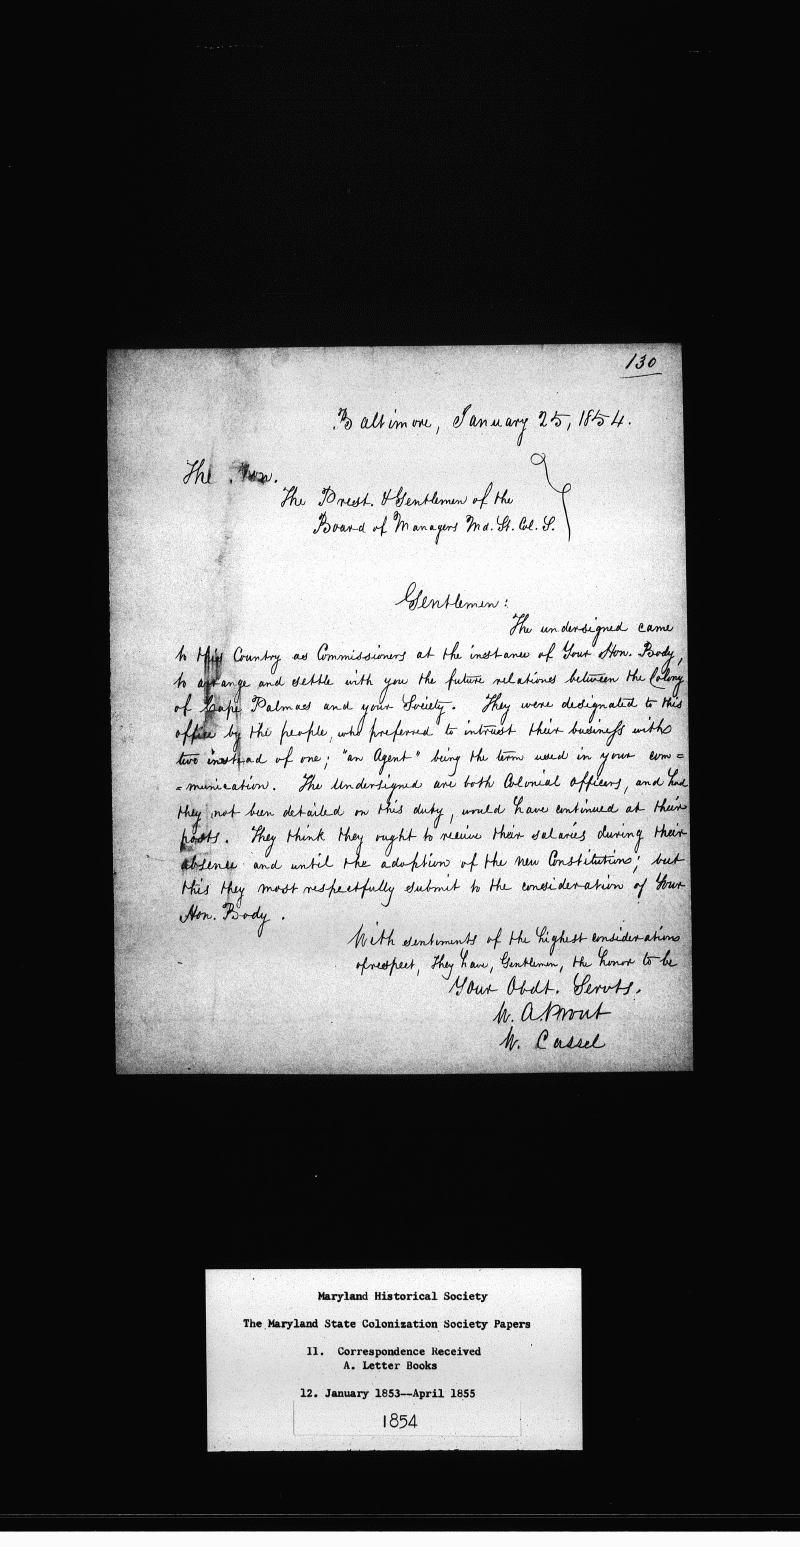 130
Baltimore, January 25, 1854.
The Hon.
The Prest. & Gentlemen of the
Board of Managers Md. St. Col. S.
Gentlemen:
The undersigned came
to this Country as Commissioners at the instance of Your Hon. Body,
to arrange and settle with you the future relations between the Colony
of Cape Palmas and your Society. They were designated to this
office by the people, who preferred to intrust their business with
two instead of one; "an Agent" being the term used in your com=
=munication. The Undersigned are both Colonial Officers, and had
they not been detailed on this duty, would have continued at their
posts. They think they ought to receive their salaries during their
absence and until the adoption of the new Constitution; but
this they most respectfully submit to the consideration of Your
Hon. Body.
With sentiments of the highest consideration
of respect, They have, Gentlemen, the honor to be
Your Obdt. Servts.
W. A. Prout
W. Cassel
Maryland Historical Society
The Maryland State Colonization Society Papers
11. Correspondence Received
A. Letter Books
12. January 1853--April 1855
1854